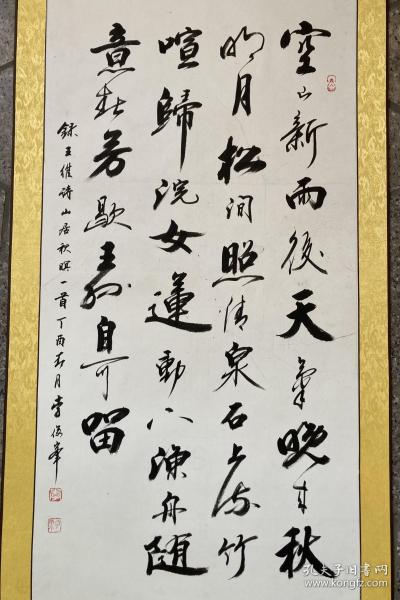 空山新雨後天氣晚来秋
明月松间照清泉石上流竹
喧歸浣女蓮動下漁舟随
意春芳歇王孫自可留
録王維诗山居秋暝一首丁酉春月李俊峯
孔夫子旧书网
www.kongfz.com